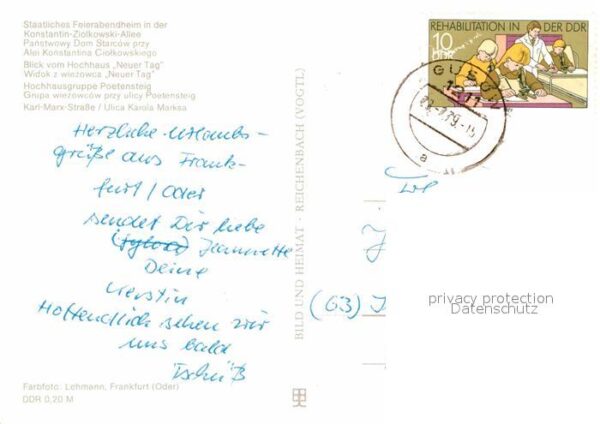 Staatliches Feierabendheim in der
Konstantin-Ziolkowski-Allee
Państwowy Dom Starców przy
Alei Konstantina Ciołkowskiego
Blick vom Hochhaus „Neuer Tag"
Widok z wieżowca „Neuer Tag"
Hochhausgruppe Poetensteig
Grupa wieżowców przy ulicy Poetensteig
Karl-Marx-Straße / Ulica Karola Marksa
Herzliche Urlaubs-
grüße aus Frank-
furt / Oder
sendet Dir liebe
Jeannette
Deine
Kerstin
Hoffentlich sehen wir
uns bald
Tschüß
Farbfoto: Lehmann, Frankfurt (Oder)
DDR 0,20 M
BILD UND HEIMAT · REICHENBACH (VOGTL)
REHABILITATION IN DER DDR
10
DDR
79.-15
a
(63) J
privacy protection
Datenschutz